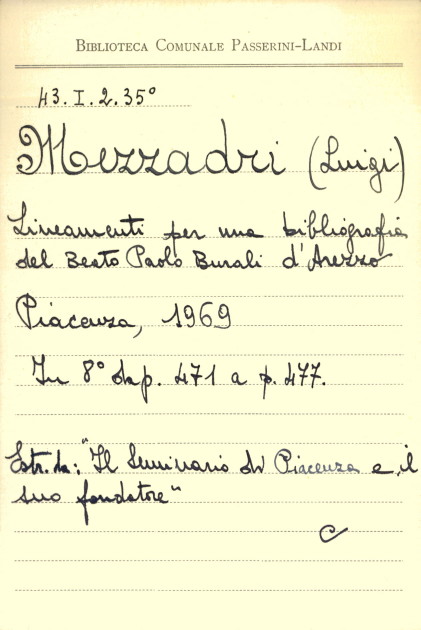 BIBLIOTECA COMUNALE PASSERINI-LANDI
43.I.2.35°
Mezzadri (Luigi)
Lineamenti per una bibliografia
del Beato Paolo Burali d'Arezzo
Piacenza, 1969
In 8° da p. 471 a p. 477.
Estr. da: "Il Seminario di Piacenza e il
suo fondatore"
C